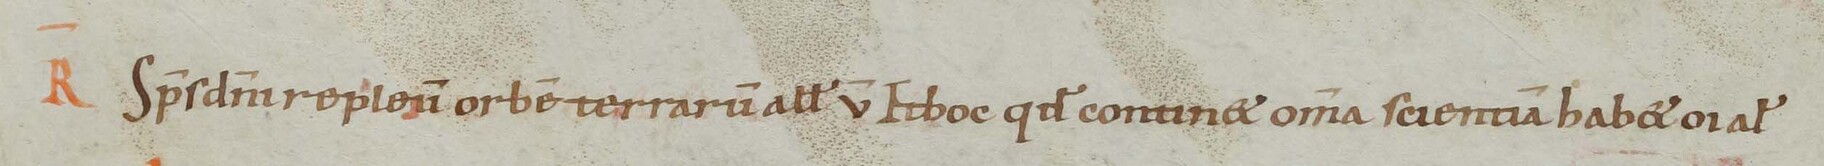 R̄ Sp̄s dn̄i repleū orbē terrarū all' v̄ Et hoc qd̄ continet om̄a scientiā habet oı al'